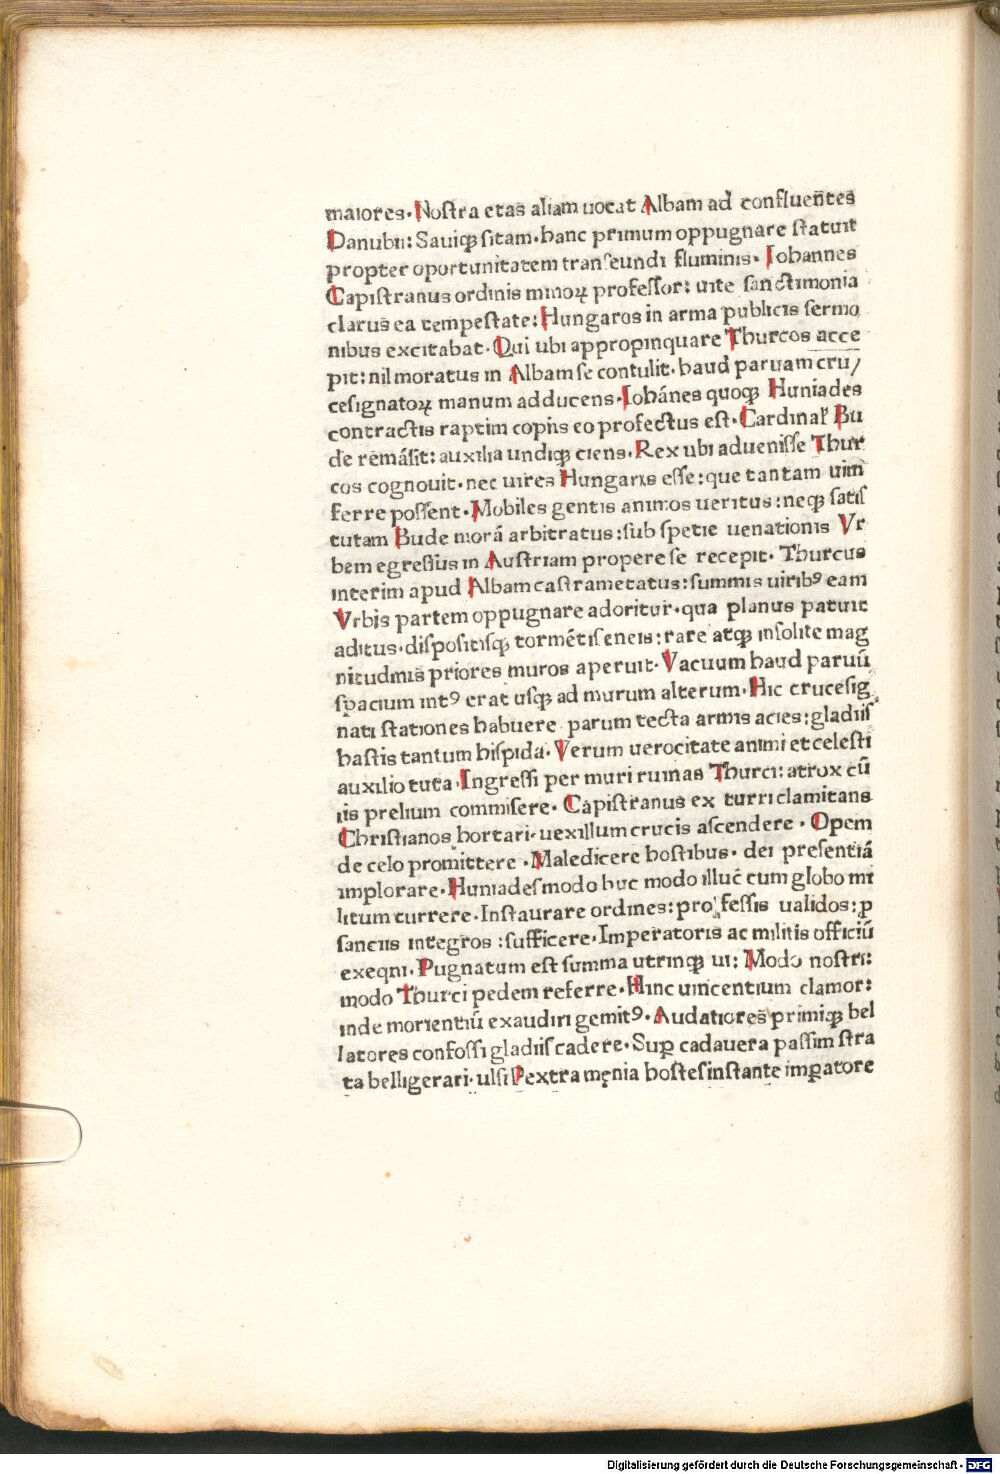 maiores. Noſtra etas aliam uocat Albam ad confluen̄tes
Danubii: Sauiqꝫ ſitam. hanc primum oppugnare ſtatuit
propter oportunitatem tranſeundi fluminis. Iohannes
Capiſtranus ordinis minoꝝ profeſſor: uite ſanctimonia
clarus ea tempeſtate: Hungaros in arma publicis ſermo
nibus excitabat. Qui ubi appropinquare Thurcos acce
pit: nil moratus in Albam ſe contulit. haud paruam cru/
ceſignatoꝝ manum adducens. Iohánes quoqꝫ Huniades
contractis raptim copiis eo profectus eſt. Cardinal̕ Bu
de remáſit: auxilia undiqꝫ ciens. Rex ubi adueniſſe Thur
cos cognouit. nec uires Hungaris eſſe: que tantam uim
ferre poſſent. Mobiles gentis animos ueritus: neqꝫ ſatiſ
tutam Bude morá arbitratus: ſub ſpetie uenationis Vr
bem egreſſus in Auſtriam propere ſe recepit. Thurcus
interim apud Albam caſtrametatus: ſummis uiribꝰ eam
Vrbis partem oppugnare adoritur. qua planus patuit
aditus. diſpoſitiſqꝫ tormētiſ eneis: rare atqꝫ inſolite mag
nitudinis priores muros aperuit. Vacuum haud paruū
ſpacium intꝰ erat uſqꝫ ad murum alterum. Hic cruceſig
nati ſtationes habuere parum tecta armis acies: gladiiſ
haſtis tantum hiſpida. Verum uerocitate animi et celeſti
auxilio tuta. Ingreſſi per muri ruinas Thurci: atrox cū
iis prelium commiſere. Capiſtranus ex turri clamitans
Chriſtianos hortari. uexillum crucis aſcendere. Opem
de celo promittere. Maledicere hoſtibus. dei preſentiá
implorare. Huniadeſ modo huc modo illuc cum globo mi
litum currere. Inſtaurare ordines: pro feſſis ualidos: ꝓ
ſanciis integros: ſufficere. Imperatoris ac militis officiū
exeqni. Pugnatum eſt ſumma utrinqꝫ ui: Modo noſtri:
modo Thurci pedem referre. Hinc uincentium clamor:
inde morientiū exaudiri gemitꝰ. Audatiores primiqꝫ bel
latores confoſſi gladiiſ cadere. Suꝑ cadauera paſſim ſtra
ta belligerari. ulſiſ extra męnia hoſteſ inſtante imꝑatore
Digitalisierung gefördert durch die Deutsche Forschungsgemeinschaft - DFG